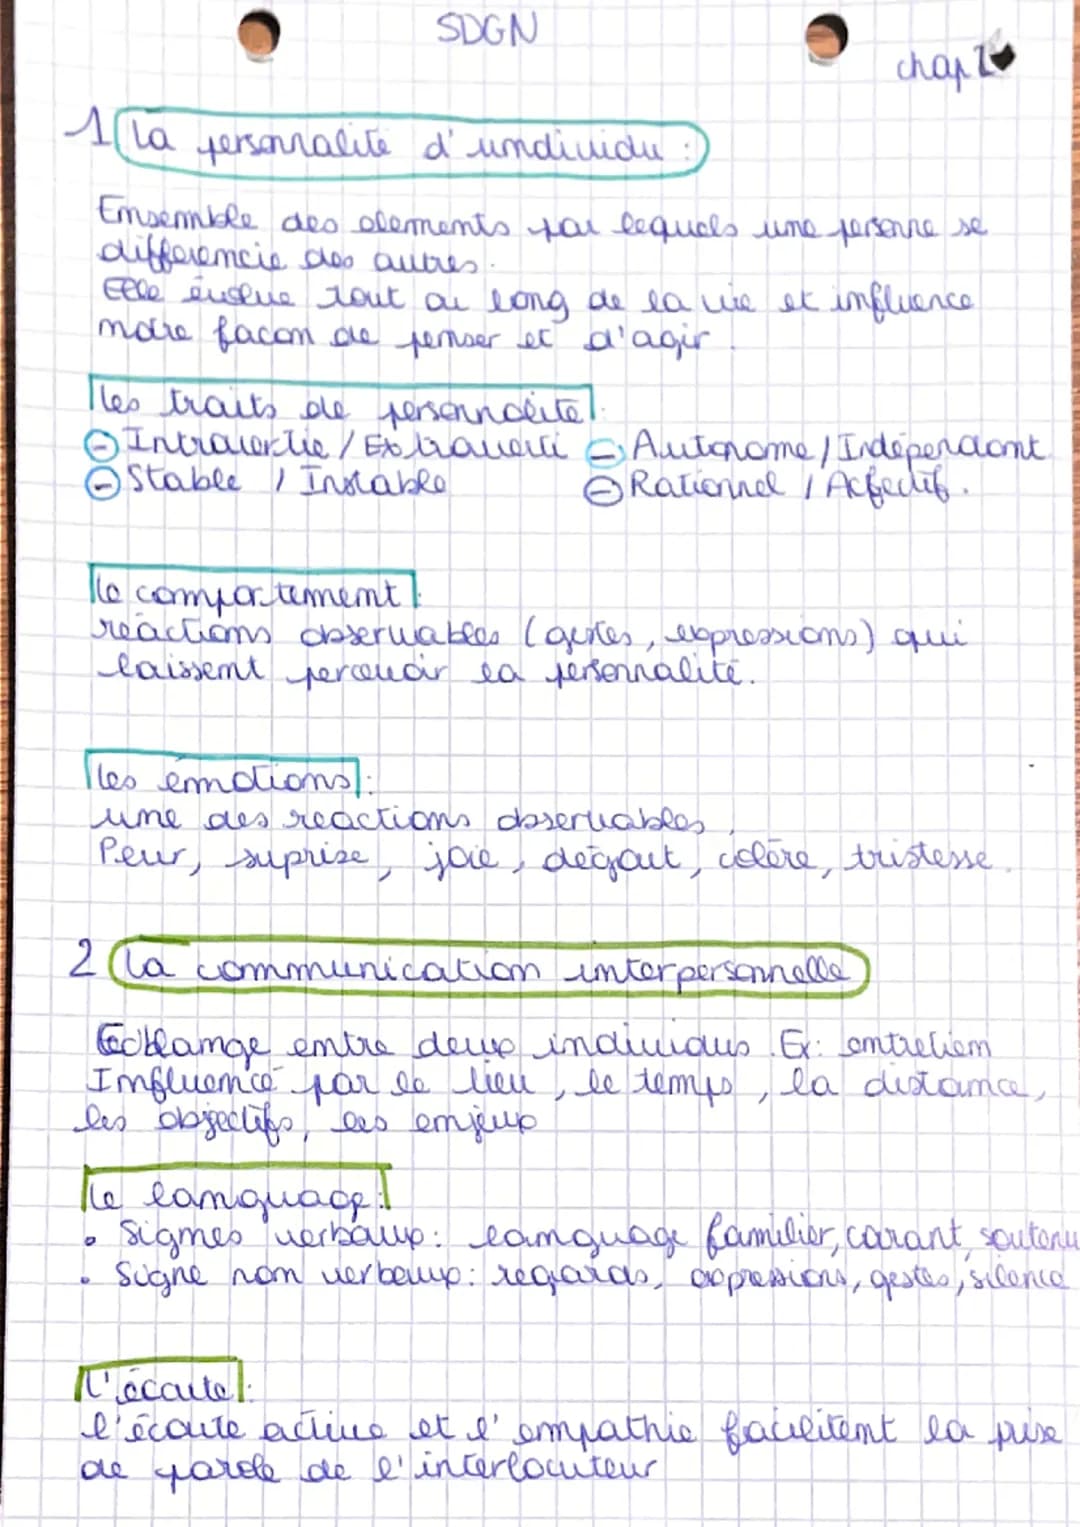 SDGN
chap 1
1 la personnalité d'umdividu :
Ensemble des elements par lequels une personne se
differencie des autres.
Elle évolue tout au long de la vie et influence
notre facon de penser et d'agir.
les traits de personnalité :
- Introvertie / Extraverti - Autonome / Indépendant
- Stable / Instable - Rationnel / Affectif.
le comportement :
réactions observables (gestes, expressions) qui
laissent percevoir la personnalité.
les émotions :
une des reactions observables,
Peur, suprise, joie, dégout, colère, tristesse.
2 la communication interpersonnelle
Echange entre deux individus. Ex: entretien
Influencé par le lieu, le temps, la distance,
les objectifs, les enjeux
le language :
• Signes verbaux : language familier, courant, soutenu
• Signe non verbaux : regards, expressions, gestes, silence
l'écoute :
l'écoute active et l'empathie facilitent la prise
de parole de l'interlocuteur